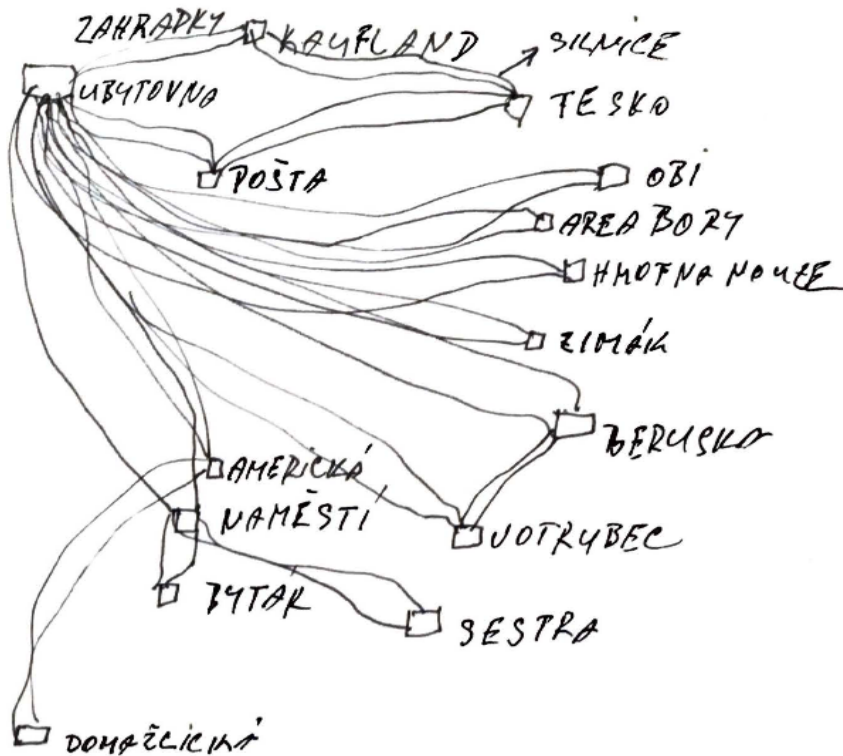 ZAHRADKY
KAUFLAND
SILNICE
UBYTOVNA
TESKO
POŠTA
OBI
AREA BORY
HMOTNA NOUZE
ZIMÁK
BERUSKA
AMERICKÁ
NAMĚSTÍ
VOTRUBEC
BYTAK
SESTRA
DOMAŽLICKÁ